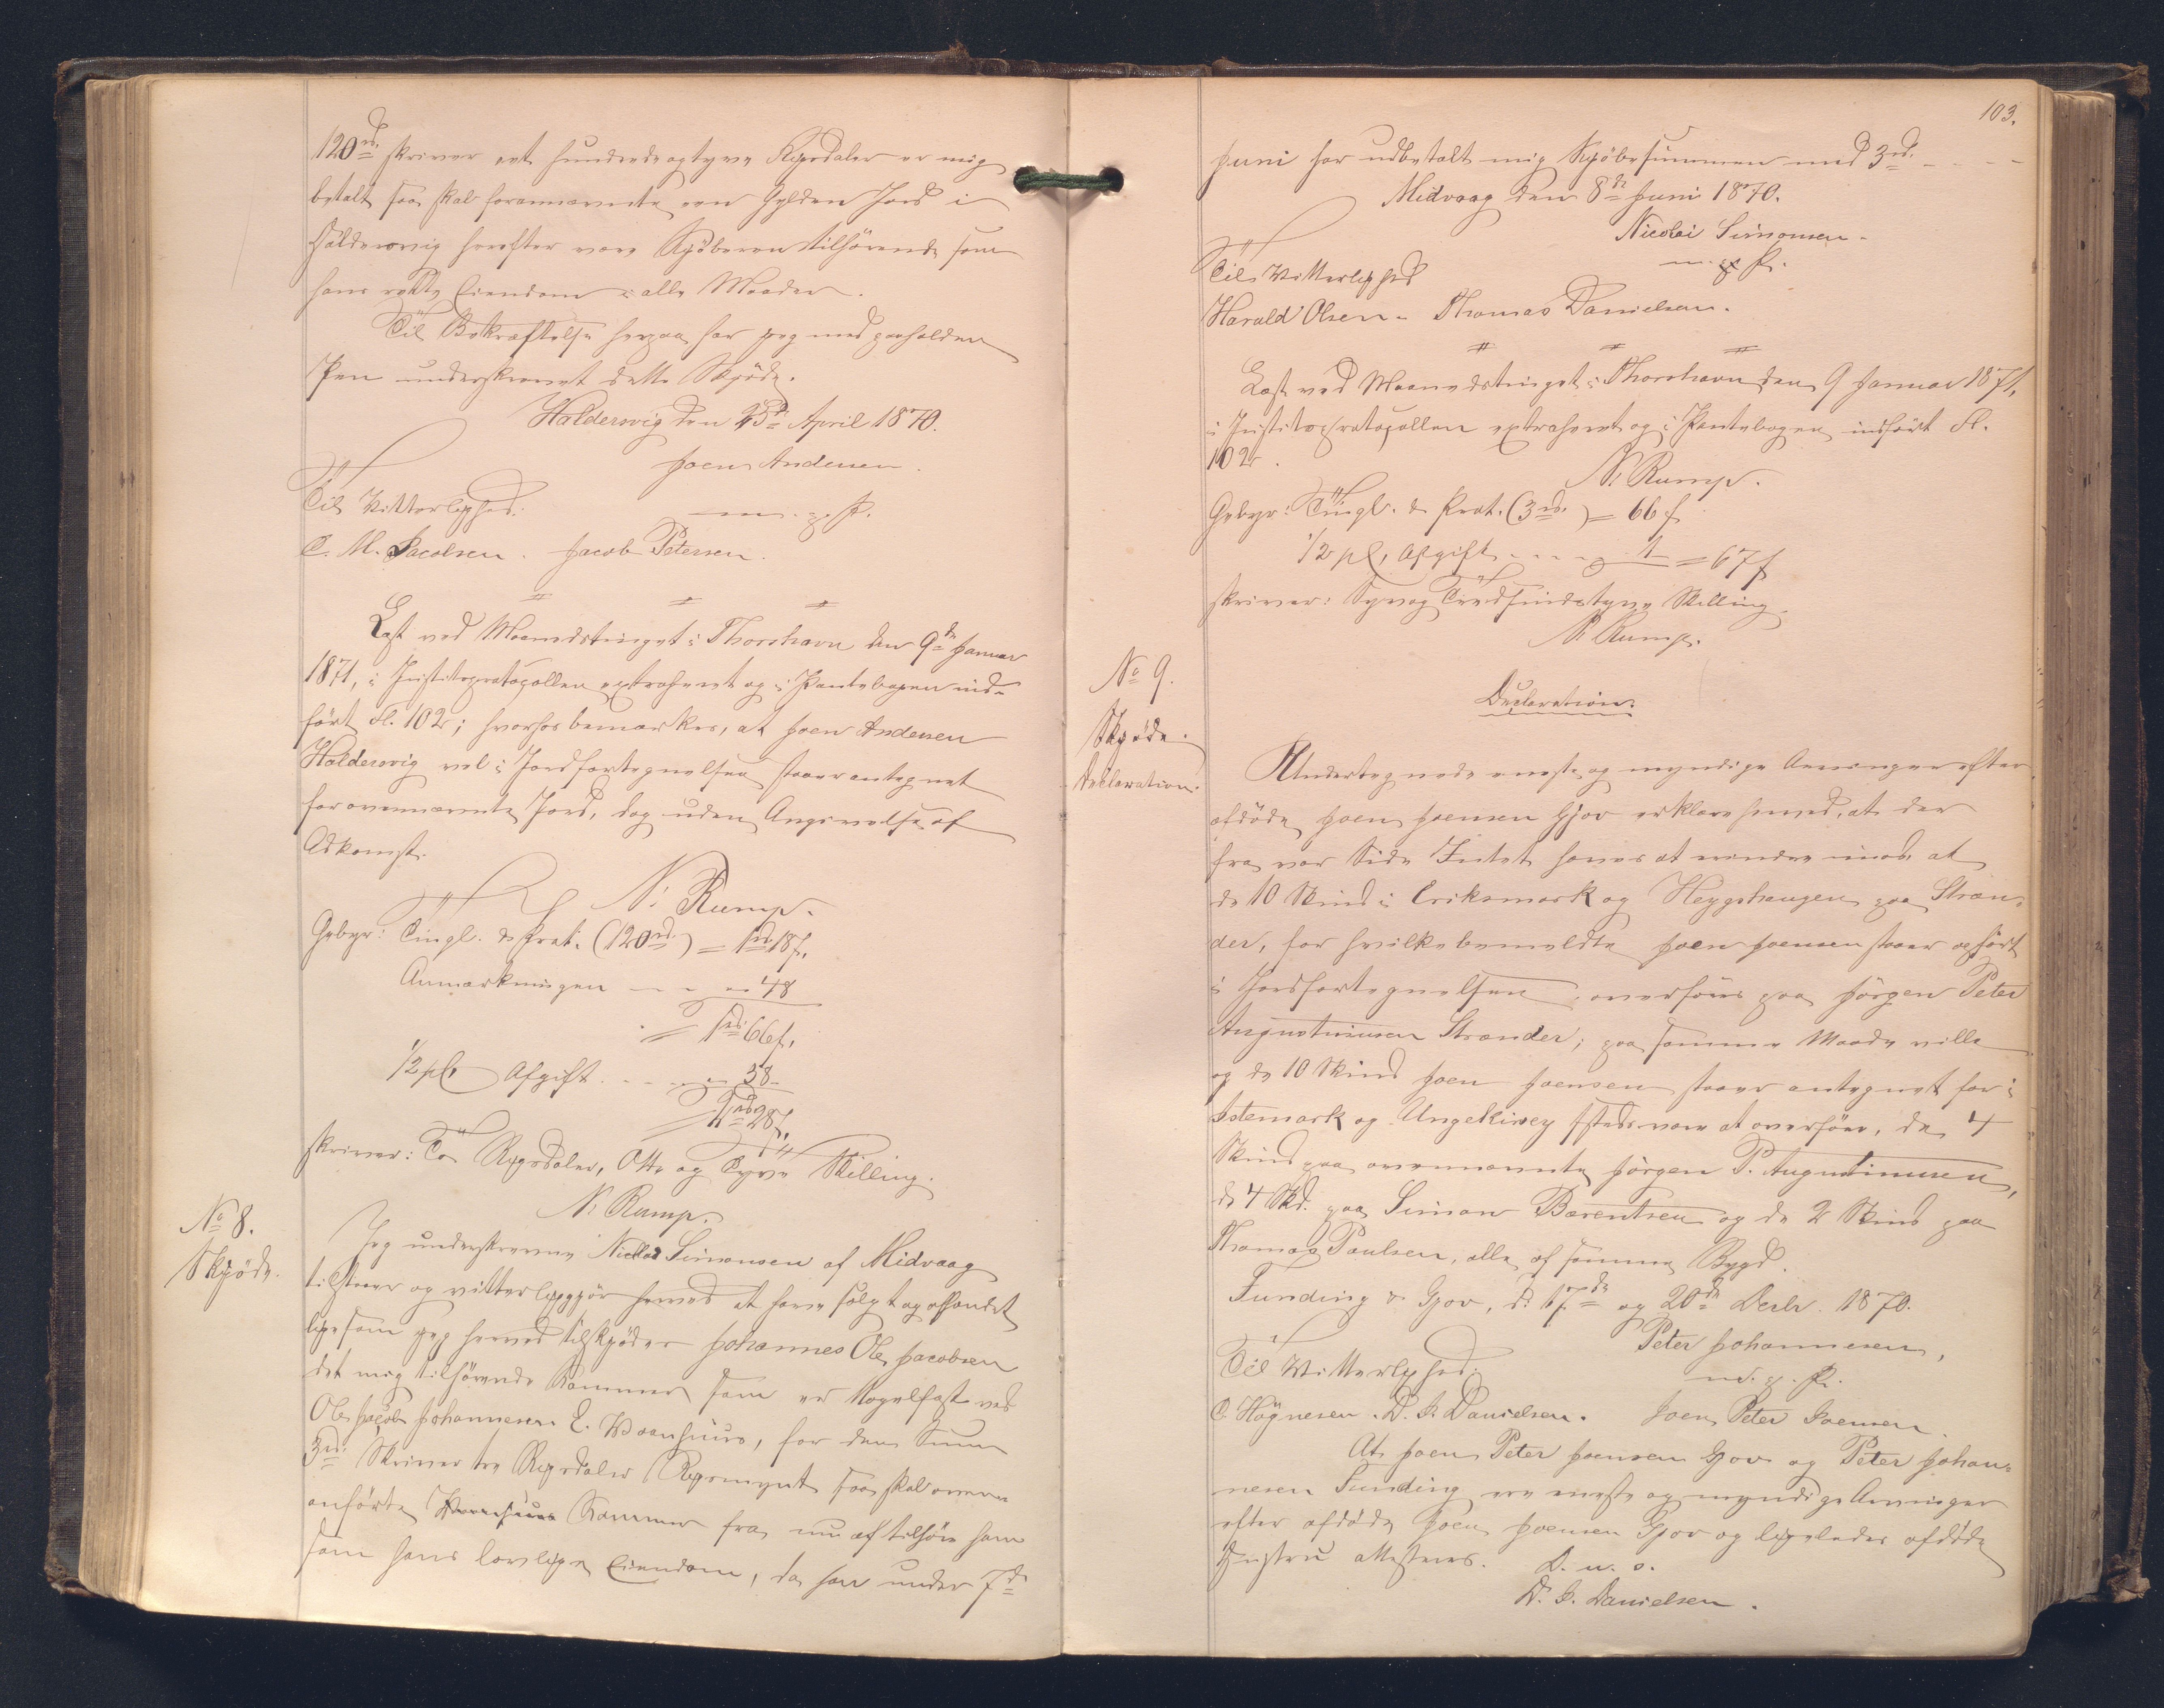 120rd. skriver eet hundrede og tyve Rigsdaler er mig
betalt saa skal forannævnte een Gylden Jord i
Haldersvig herefter være Kjøberen tilhørende som
hans rette Eiendom i alle Maader.
Til Bekræftelse herpaa har jeg med paaholden
Pen underskrevet dette Skjøde.
Haldersvig den 25de April 1870.
Joen Andersen.
m. p. P.
Til Vitterlighed:
C. M. Jacobsen. Jacob Petersen.
Læst ved Maanedstinget i Thorshavn den 9de Januar
1871, i Justitsprotocollen extraheret og i Pantebogen ind-
ført Fl. 102; hvorhos bemærkes, at Joen Andersen
Haldersvig vel i Jordfortegnelsen staaer antegnet
for ovennævnte Jord, dog uden Angivelse af
Adkomst.
N. Rump.
Gebyr: Tingl. & Prot. (120rd.) = 1rd. 18f.
Anmærkningen - - - 48
= 1rd. 66f.
1/2 pCt Afgift - - - 58
= 2rd. 28f.
skriver: To Rigsdaler, Otte og Tyve Skilling.
N. Rump.
No 8.
Skjøde.
Jeg underskrevne Nicolai Simonsen af Midvaag
tilstaaer og vitterliggjør herved at have solgt og afhændet
ligesom jeg herved tilskjøder Johannes Ole Jacobsen
det mig tilhørende Kammer som er Nagelfast ved
Ole Jacob Johannesen E. Vaanhuus, for den Sum
3rd. Skriver tre Rigsdaler Rigsmynt saa skal oven
anførte Kammer fra nu af tilhøre ham
som hans lovlige Eiendom, da han under 7de
103.
Juni har udbetalt mig Kjøbesummen med 3rd. - - - -
Midvaag den 8de Juni 1870.
Nicolai Simonsen -
m. p. P.
Til Vitterlighed
Harald Olsen - Thomas Danielsen.
Læst ved Maanedstinget i Thorshavn den 9 Januar 1871,
i Justitsprotocollen extraheret og i Pantebogen indført Fl.
102.
N. Rump.
Gebyr: Tingl. & Prot. (3rd.) = 66 f
1/2 pCt. Afgift - - - 1 = 67 f
skriver: Syv og Tredsindstyve Skilling.
N. Rump.
No 9.
Skjøde.
Declaration.
Declaration.
Undertegnede eneste og myndige Arvinger efter
afdøde Joen Joensen Gjov erklære herved, at der
fra vor Side Intet haves at erindre imod at
de 10 Skind i Eriksmark og Heygshaugen paa Stræn-
der, for hvilke bemeldte Joen Joensen staaer opført
i Jordfortegnelsen, overføres paa Jörgen Peter
Augustinusen Strænder; paa samme Maade ville
og de 10 Skind Joen Joensen staaer antegnet for i
Istemark og Ungekirsey være at overføre, de 4
Skind paa ovennævnte Jörgen P. Augustinusen,
de 4 Skd. paa Simon Bærentsen og de 2 Skind paa
Thomas Poulsen, alle af samme Bygd.
Funding & Gjov, d. 17de og 20de Decbr. 1870.
Peter Johannesen,
m. p. P.
Til Vitterlighed:
C. Högnesen. D. J. Danielsen. Joen Peter Joensen
At Joen Peter Joensen Gjov og Peter Johan-
nesen Funding ere eneste og myndige Arvinger
efter afdøde Joen Joensen Gjov og ligeledes afdøde
Hustru attesteres. D. u. s.
D. J. Danielsen.